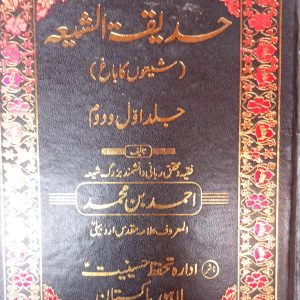 حدیقۃ الشیعہ
(شیعوں کا باغ)
جلد اوّل و دوم
تالیف
فقیہ و محقق ربانی دانشمند بزرگ شیعہ
احمد بن محمد
المعروف علامہ مقدس اردبیلی
ناشر
ادارہ تحفظ حسینیت
لاہور پاکستان